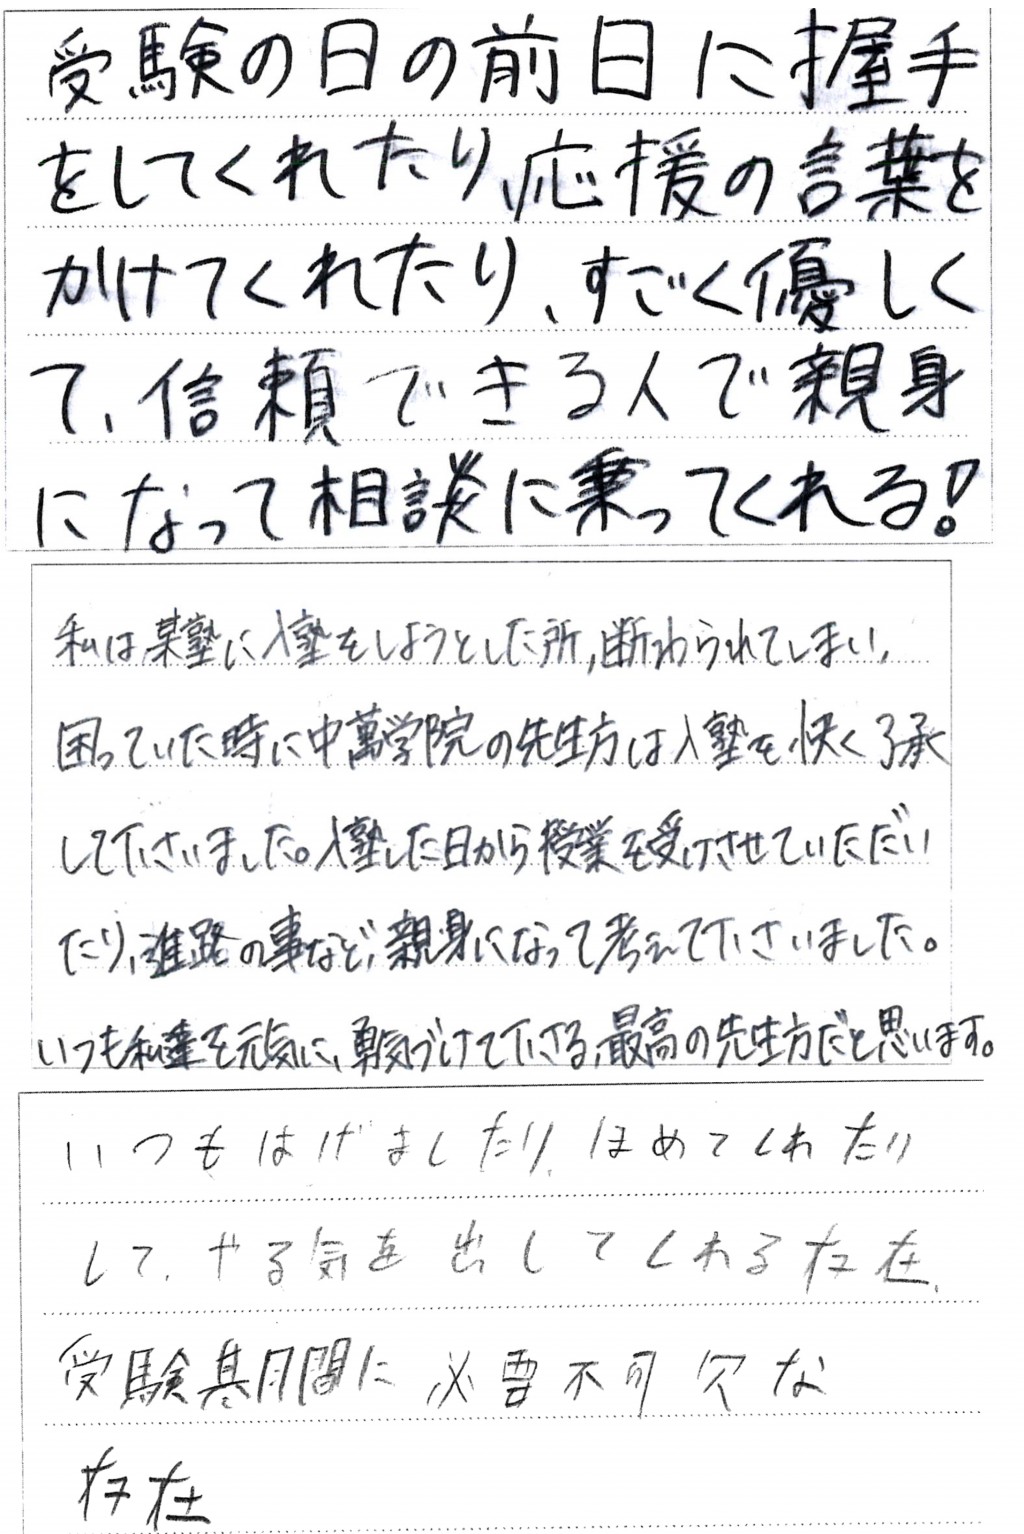 受験の日の前日に握手
をしてくれたり、応援の言葉を
かけてくれたり、すごく優しく
て、信頼できる人で親身
になって相談に乗ってくれる!
私は某塾に入塾をしようとした所,断わられてしまい,
困っていた時に中萬学院の先生方は入塾を快く了承
して下さいました。入塾した日から授業を受けさせていただい
たり、進路の事など、親身になって考えて下さいました。
いつも私達を元気に、勇気づけて下さる、最高の先生方だと思います。
いつもはげましたり、ほめてくれたり
して、やる気を出してくれる存在、
受験期間に必要不可欠な
存在